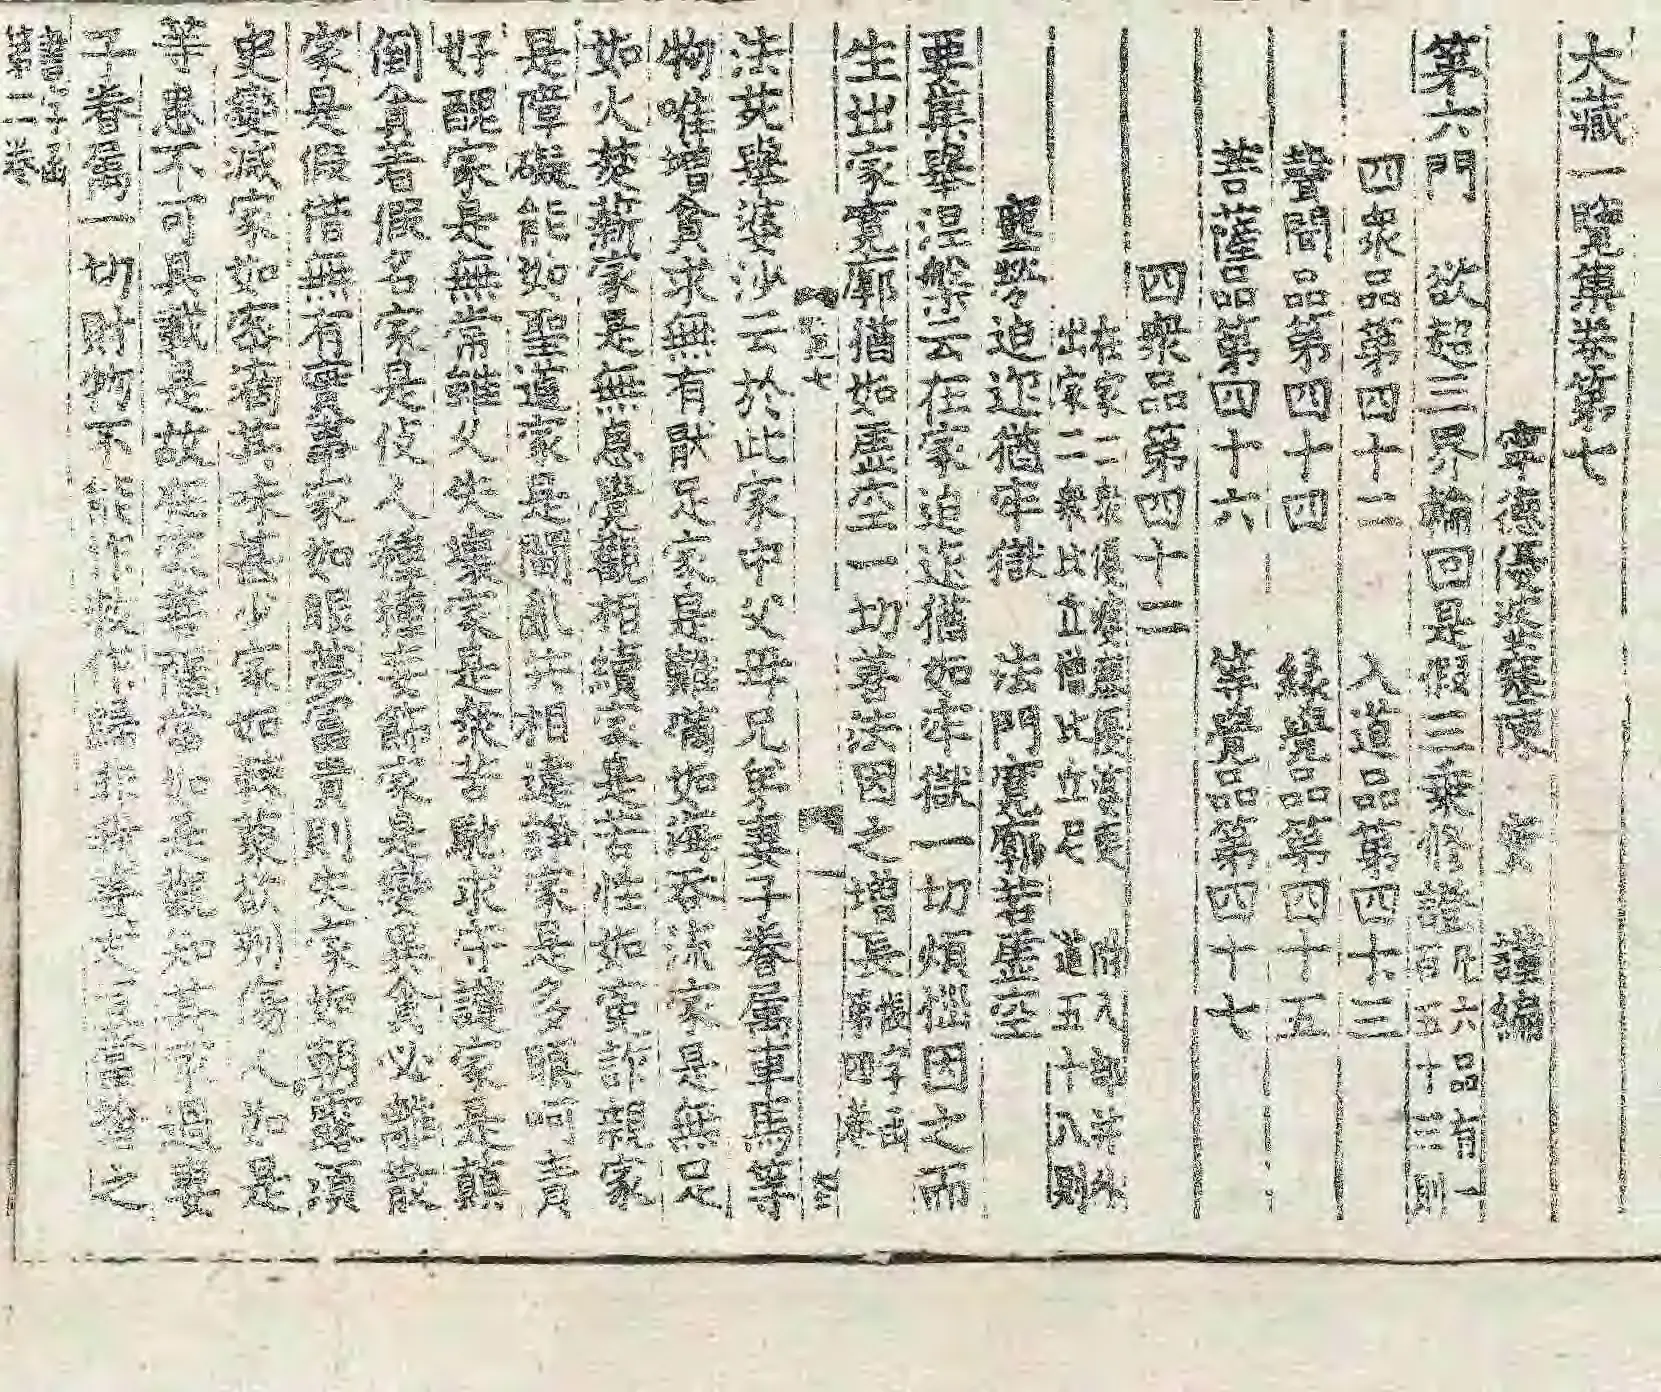 大藏一覽集卷第七
寧德優婆塞陳 實 謹編
第六門 欲超三界輪回是假三乘修證 凡六品有一百五十三則
四衆品第四十二 入道品第四十三
聲聞品第四十四 緣覺品第四十五
菩薩品第四十六 等覺品第四十七
四衆品第四十二
在家二衆優婆塞優婆夷 附八部幷外
出家二衆比丘僧比丘尼 道五十八則
塵勞迫迮猶牢獄 法門寬廓若虛空
要集舉涅槃云在家迫迮猶如牢獄一切煩惱因之而
生出家寬廓猶如虛空一切善法因之增長 字函第四卷
七
一
法苑舉婆沙云於此家中父母兄弟妻子眷屬車馬等
物唯增貪求無有猒足家是難滿如海吞流家是無足
如火焚薪家是無息覺觀相續家是苦性如怨詐親家
是障礙能妨聖道家是鬪亂共相違諍家是多瞋呵責
好醜家是無常雖久失壞家是衆苦馳求守護家是顚
倒貪著假名家是伎人種種妄飾家是變異貪必離散
家是假借無有實事家如眠夢富貴則失家如朝露須
臾變滅家如蜜滴其味甚少家如棘叢欲刺傷人如是
等患不可具載是故在家菩薩當如是觀知其不過妻
子眷屬一切財物不能作救作歸
第二卷